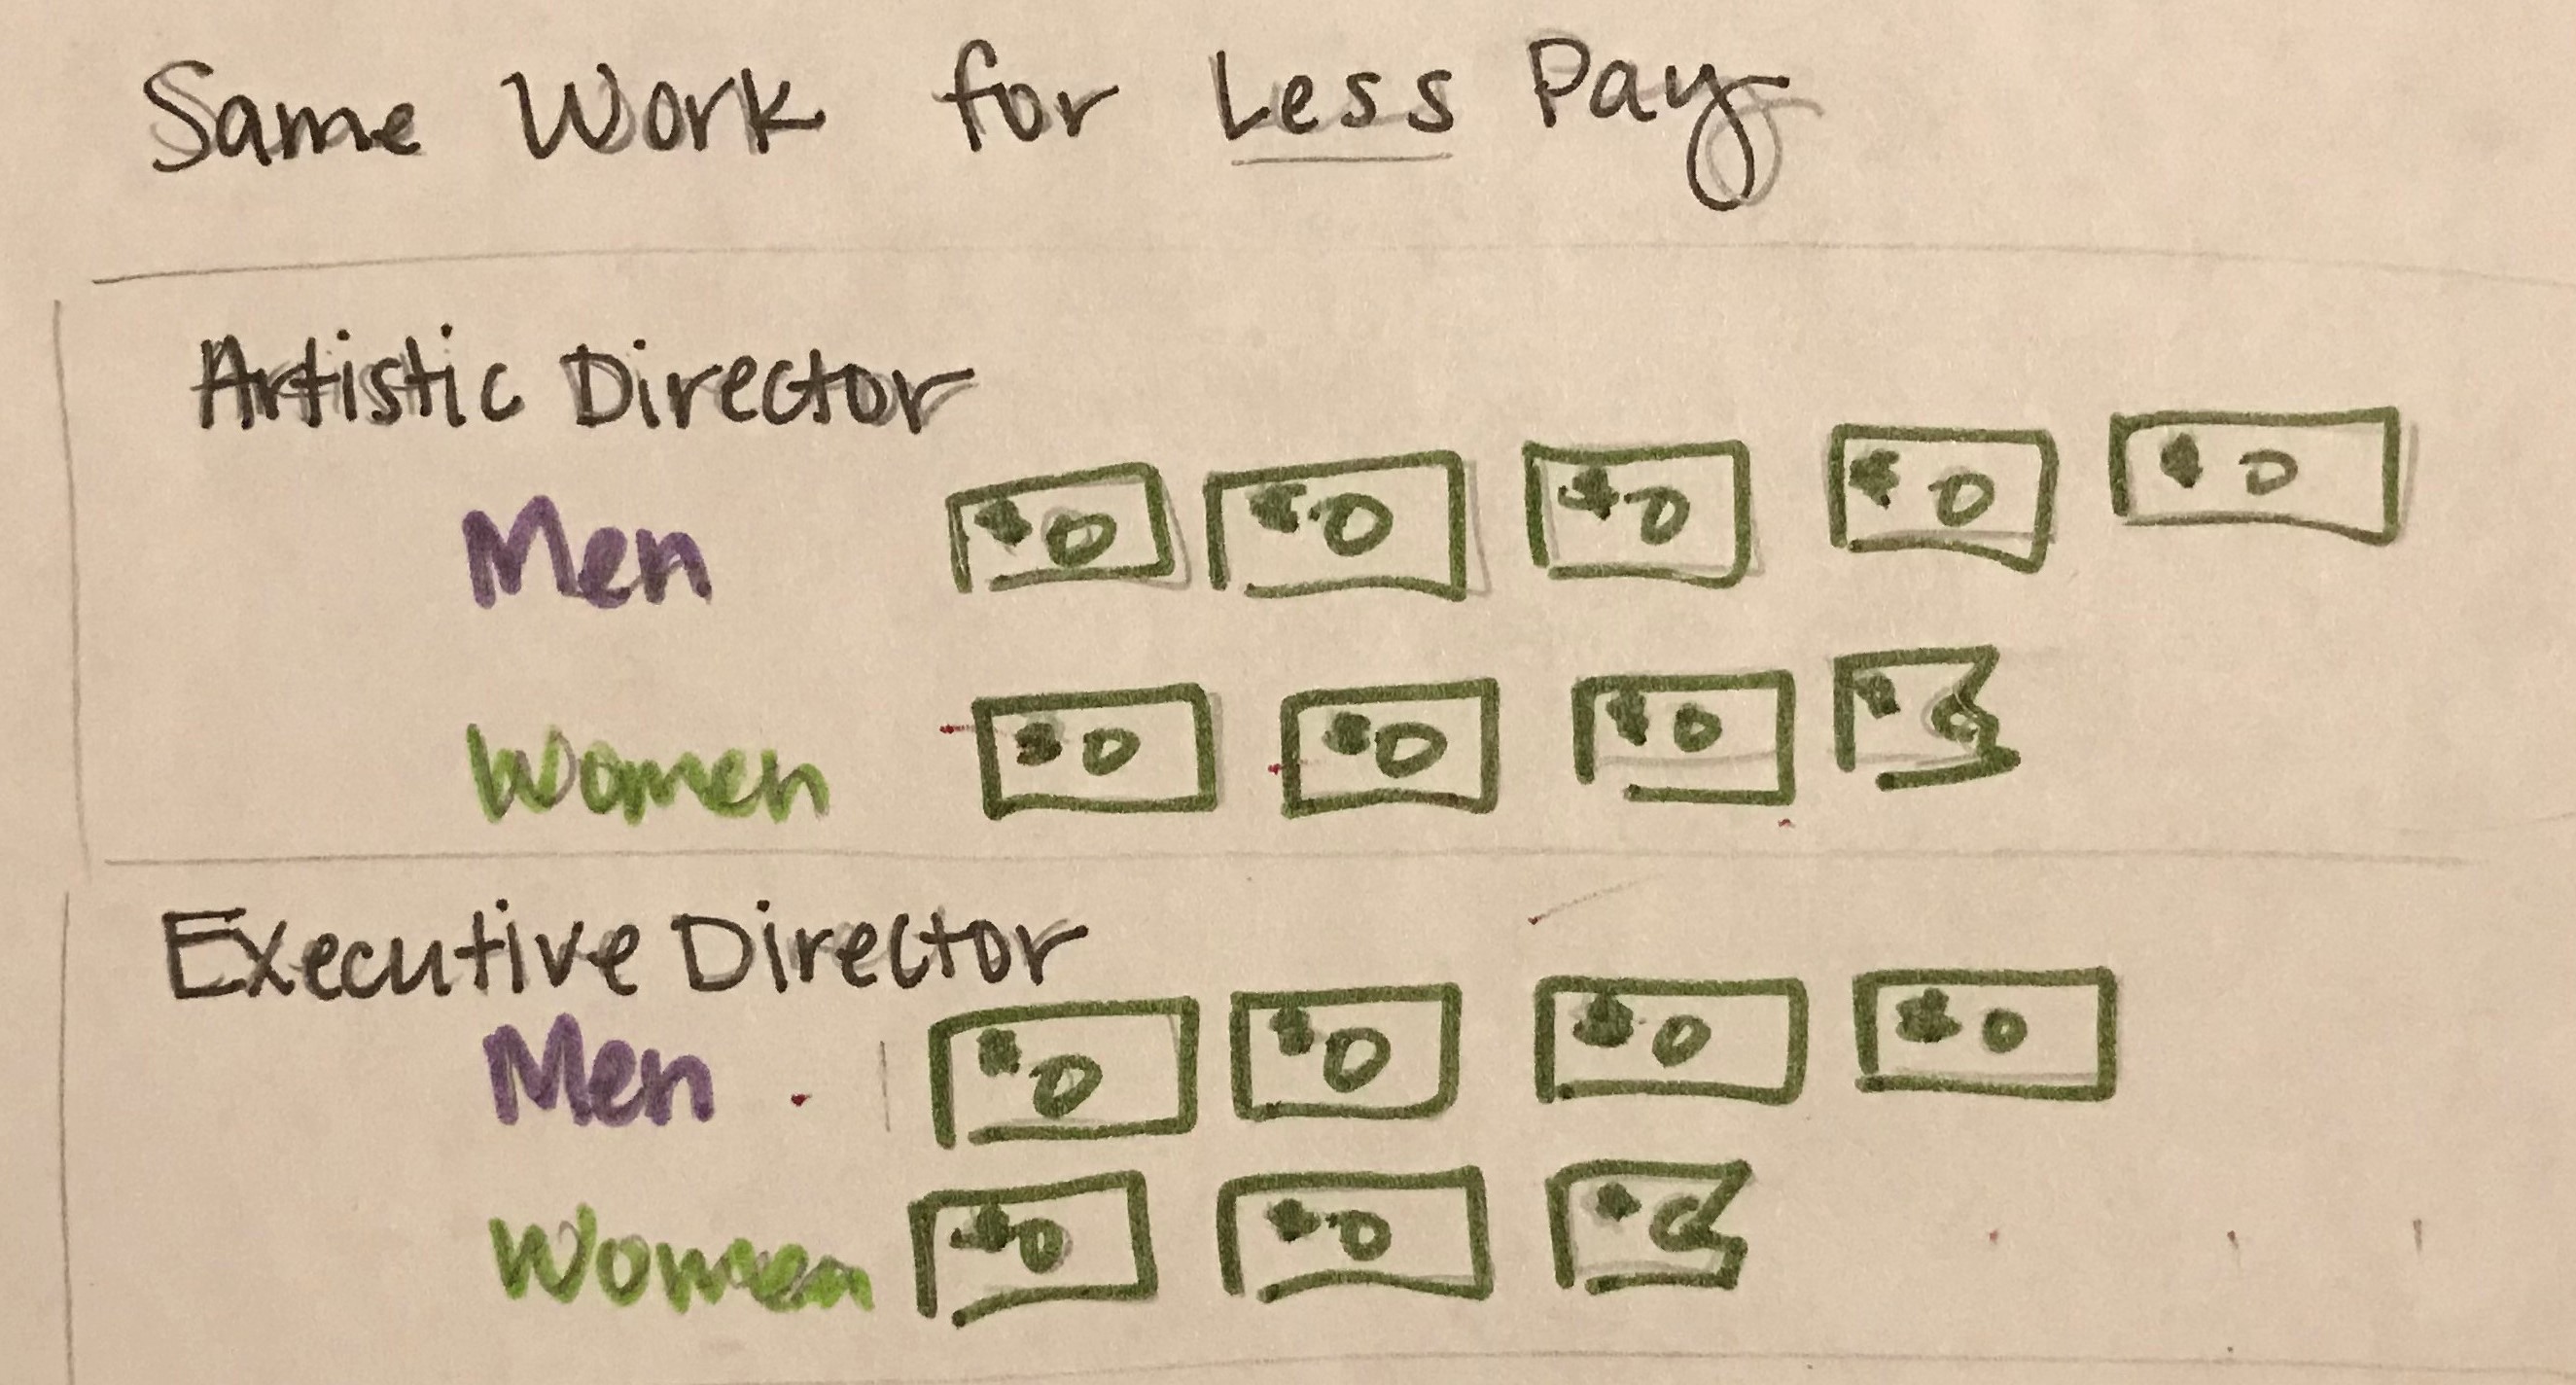 Same Work for Less Pay
Artistic Director
Men
Women
Executive Director
Men
Women